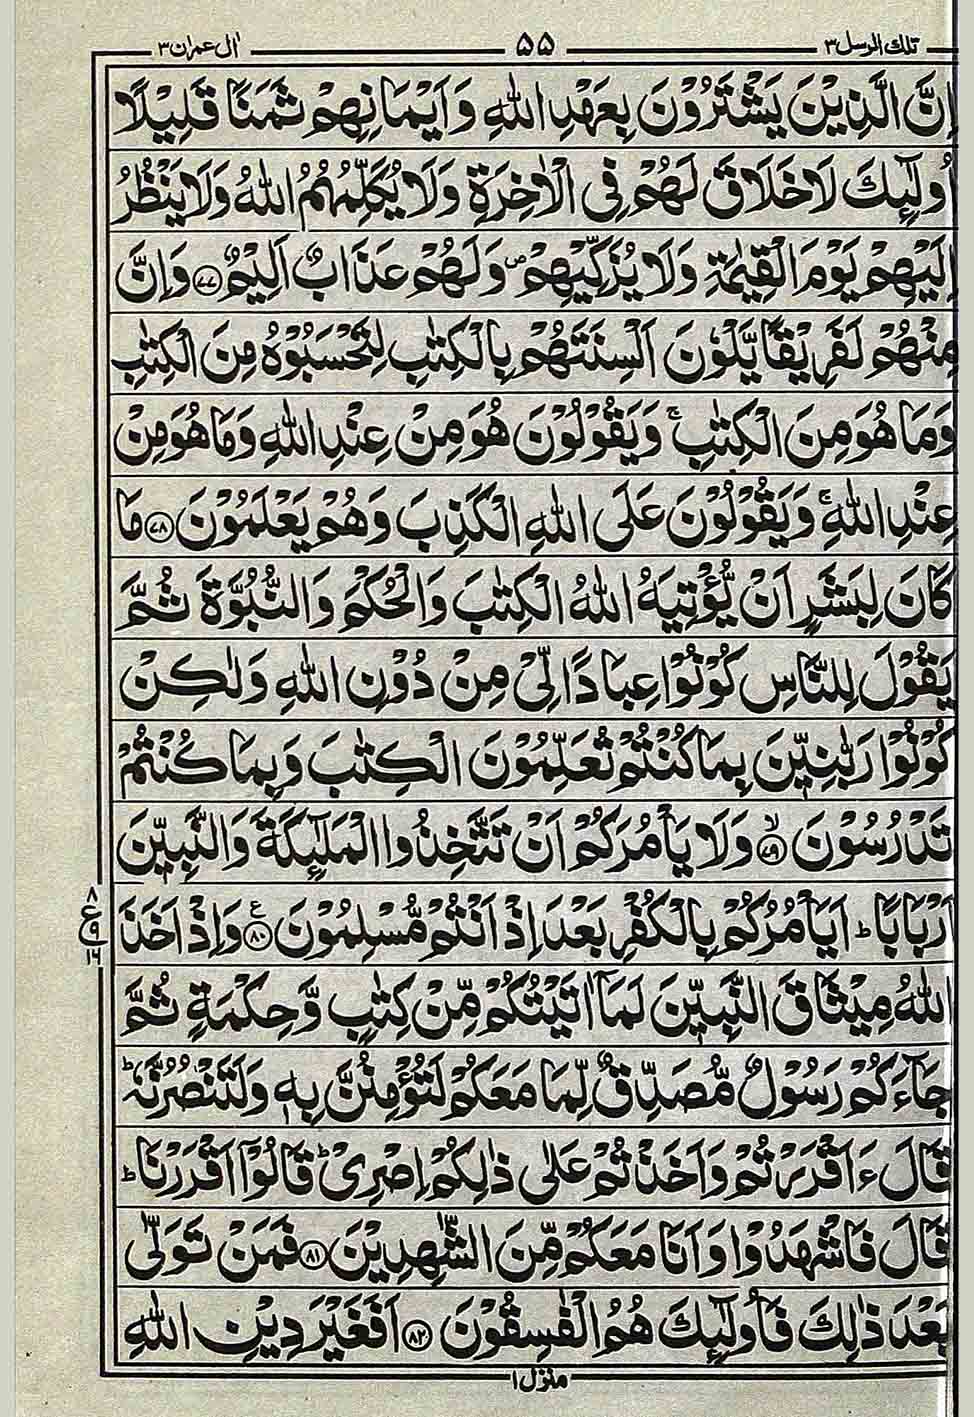 تلك الرسل ٣ ۵۵ اٰل عمرٰن ٣
اِنَّ الَّذِيْنَ يَشْتَرُوْنَ بِعَهْدِ اللّٰهِ وَاَيْمَانِهِمْ ثَمَنًا قَلِيْلًا
اُولٰٓئِكَ لَا خَلَاقَ لَهُمْ فِى الْاٰخِرَةِ وَلَا يُكَلِّمُهُمُ اللّٰهُ وَلَا يَنْظُرُ
اِلَيْهِمْ يَوْمَ الْقِيٰمَةِ وَلَا يُزَكِّيْهِمْ ۪ وَلَهُمْ عَذَابٌ اَلِيْمٌ ﴿۷۷﴾ وَاِنَّ
مِنْهُمْ لَفَرِيْقًا يَّلْوٗنَ اَلْسِنَتَهُمْ بِالْكِتٰبِ لِتَحْسَبُوْهُ مِنَ الْكِتٰبِ
وَمَا هُوَ مِنَ الْكِتٰبِ ۚ وَيَقُوْلُوْنَ هُوَ مِنْ عِنْدِ اللّٰهِ وَمَا هُوَ مِنْ
عِنْدِ اللّٰهِ ۚ وَيَقُوْلُوْنَ عَلَى اللّٰهِ الْكَذِبَ وَهُمْ يَعْلَمُوْنَ ﴿۷۸﴾ مَا
كَانَ لِبَشَرٍ اَنْ يُّؤْتِيَهُ اللّٰهُ الْكِتٰبَ وَالْحُكْمَ وَالنُّبُوَّةَ ثُمَّ
يَقُوْلَ لِلنَّاسِ كُوْنُوْا عِبَادًا لِّىْ مِنْ دُوْنِ اللّٰهِ وَلٰكِنْ
كُوْنُوْا رَبّٰنِيّٖنَ بِمَا كُنْتُمْ تُعَلِّمُوْنَ الْكِتٰبَ وَبِمَا كُنْتُمْ
تَدْرُسُوْنَ ﴿۷۹﴾ ۙ وَلَا يَاْمُرَكُمْ اَنْ تَتَّخِذُوا الْمَلٰٓئِكَةَ وَالنَّبِيّٖنَ
اَرْبَابًا ؕ اَيَاْمُرُكُمْ بِالْكُفْرِ بَعْدَ اِذْ اَنْتُمْ مُّسْلِمُوْنَ ﴿۸۰﴾ ع وَاِذْ اَخَذَ
۸
ع ۹
۱۶
اللّٰهُ مِيْثَاقَ النَّبِيّٖنَ لَمَاۤ اٰتَيْتُكُمْ مِّنْ كِتٰبٍ وَّحِكْمَةٍ ثُمَّ
جَآءَكُمْ رَسُوْلٌ مُّصَدِّقٌ لِّمَا مَعَكُمْ لَتُؤْمِنُنَّ بِهٖ وَلَتَنْصُرُنَّهٗ ؕ
قَالَ ءَاَقْرَرْتُمْ وَاَخَذْتُمْ عَلٰى ذٰلِكُمْ اِصْرِىْ ؕ قَالُوْۤا اَقْرَرْنَا ؕ
قَالَ فَاشْهَدُوْا وَاَنَا مَعَكُمْ مِّنَ الشّٰهِدِيْنَ ﴿۸۱﴾ فَمَنْ تَوَلّٰى
بَعْدَ ذٰلِكَ فَاُولٰٓئِكَ هُمُ الْفٰسِقُوْنَ ﴿۸۲﴾ اَفَغَيْرَ دِيْنِ اللّٰهِ
منزل ۱